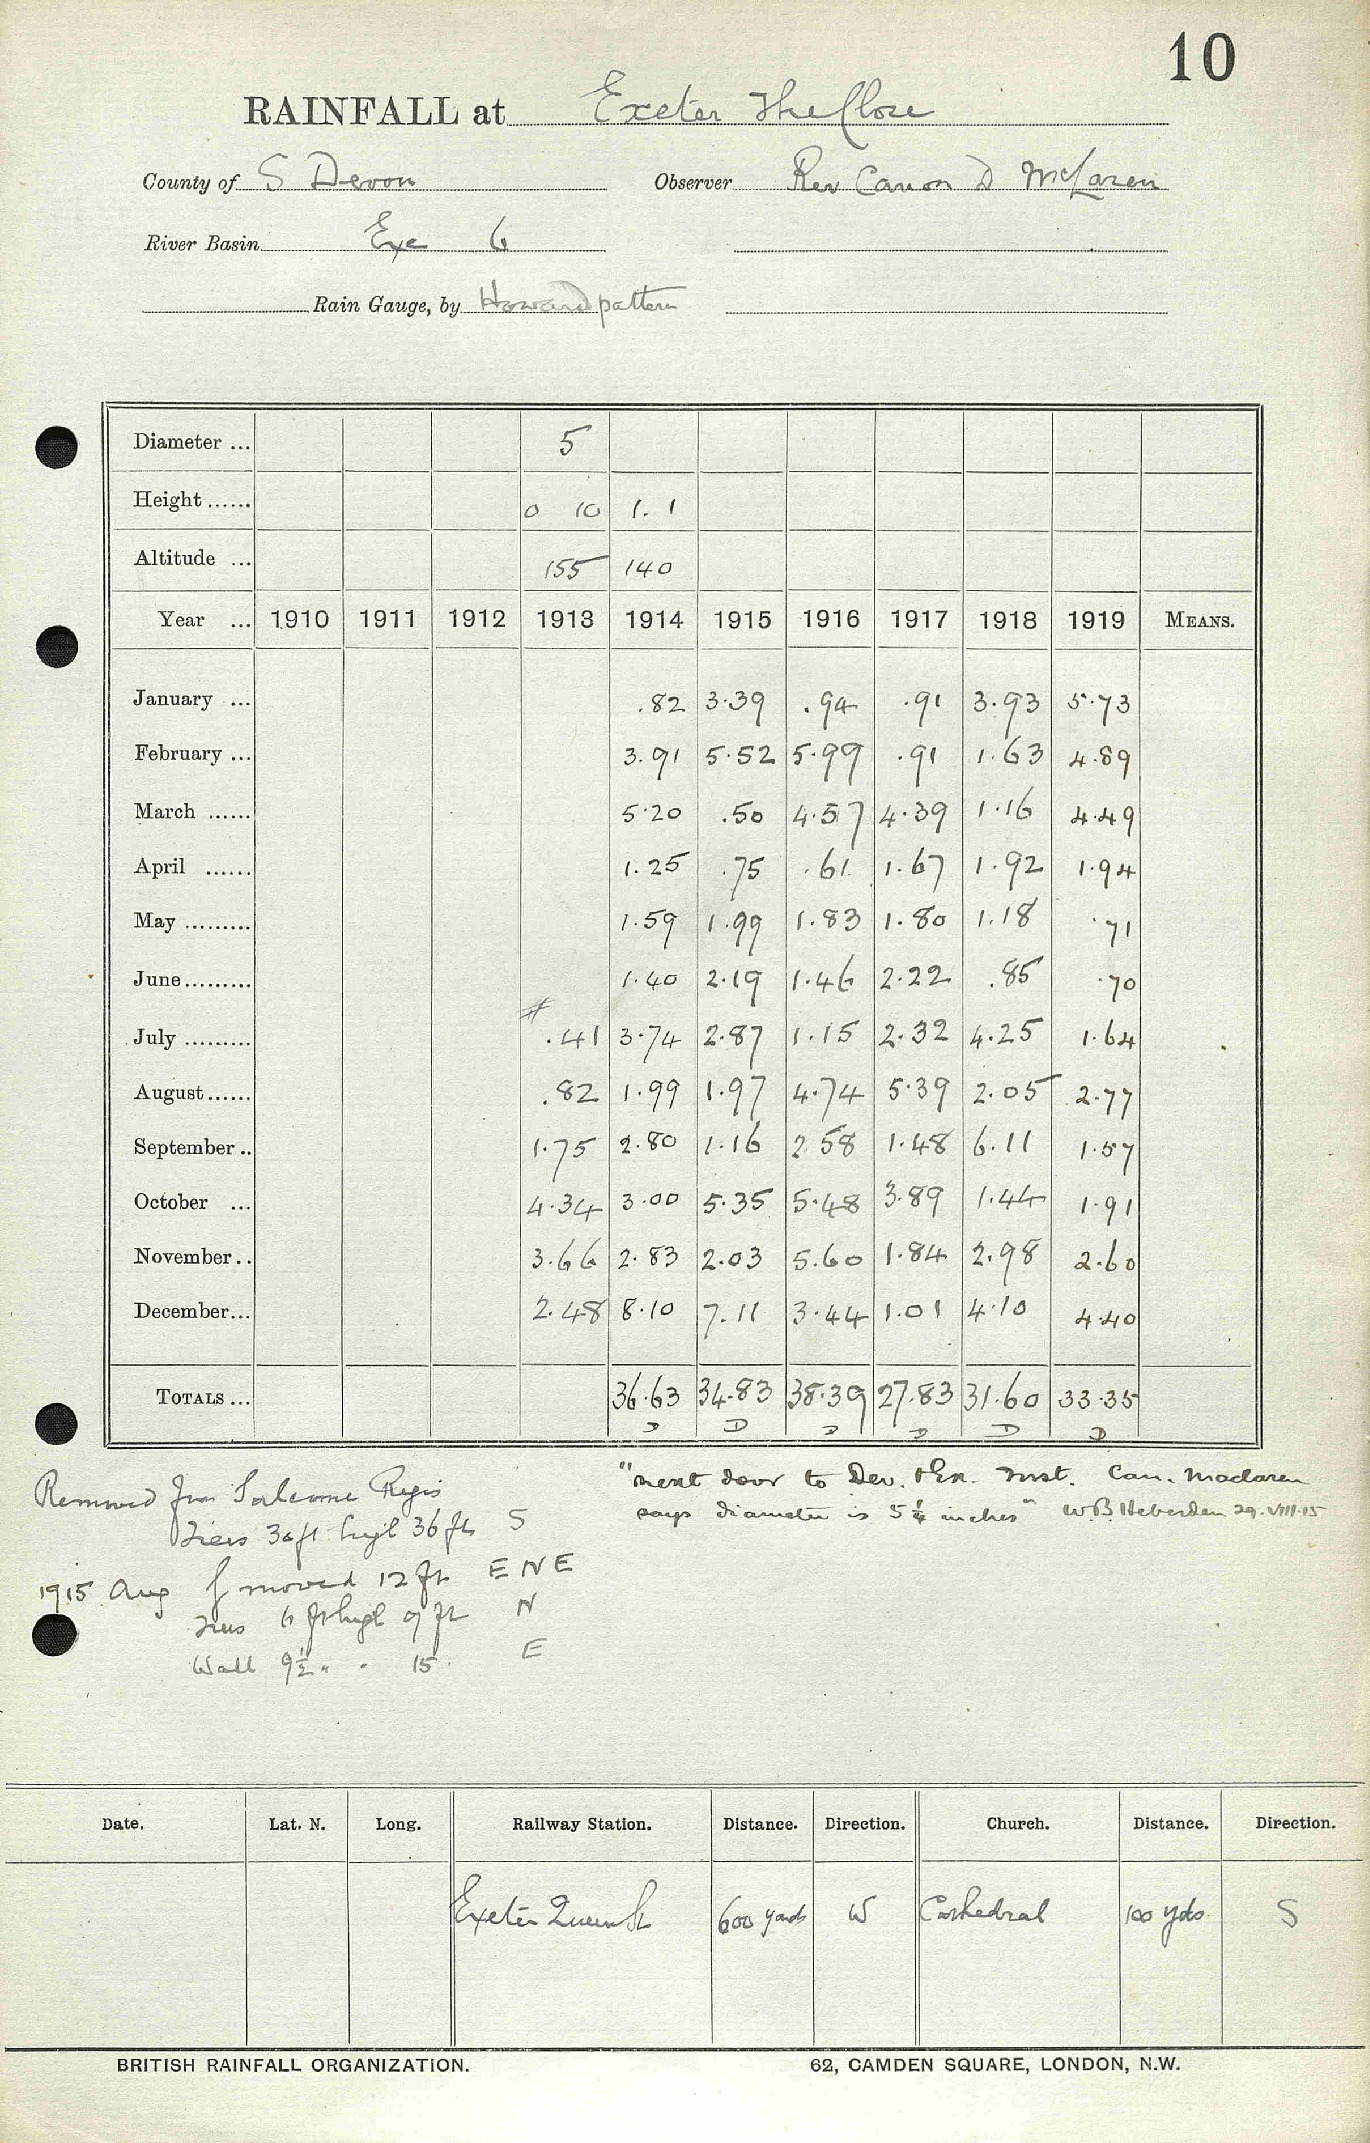 10
RAINFALL at Exeter The Close
County of S Devon Observer Rev Canon D McLaren
River Basin Exe 6
Rain Gauge, by Howard pattern
Diameter ... 5
Height ...... 0 10 1. 1
Altitude ... 155 140
Year ... 1910 1911 1912 1913 1914 1915 1916 1917 1918 1919 MEANS.
January ... .82 3.39 .94 .91 3.93 5.73
February ... 3.91 5.52 5.99 .91 1.63 4.89
March ...... 5.20 .50 4.57 4.39 1.16 4.49
April ...... 1.25 .75 .61 1.67 1.92 1.94
May ......... 1.59 1.99 1.83 1.80 1.18 .71
June......... 1.40 2.19 1.46 2.22 .85 .70
July ......... # .41 3.74 2.87 1.15 2.32 4.25 1.64
August...... .82 1.99 1.97 4.74 5.39 2.05 2.77
September.. 1.75 2.80 1.16 2.58 1.48 6.11 1.57
October ... 4.34 3.00 5.35 5.48 3.89 1.44 1.91
November.. 3.66 2.83 2.03 5.60 1.84 2.98 2.60
December... 2.48 8.10 7.11 3.44 1.01 4.10 4.40
TOTALS ... 36.63 34.83 38.39 27.83 31.60 33.35
D D D D D D
Removed from Salcombe Regis
Trees 30ft high 36 ft S
1915 Aug moved 12 ft ENE
Trees 6 ft high 9 ft N
Wall 9½ " " 15 E
"next door to Dev. & Ex. Inst. Can. Maclaren
says diameter is 5¼ inches" W.B. Heberden 29.VIII.15
Date. Lat. N. Long. Railway Station. Distance. Direction. Church. Distance. Direction.
Exeter Queen St 600 yards W Cathedral 100 yds S
BRITISH RAINFALL ORGANIZATION. 62, CAMDEN SQUARE, LONDON, N.W.